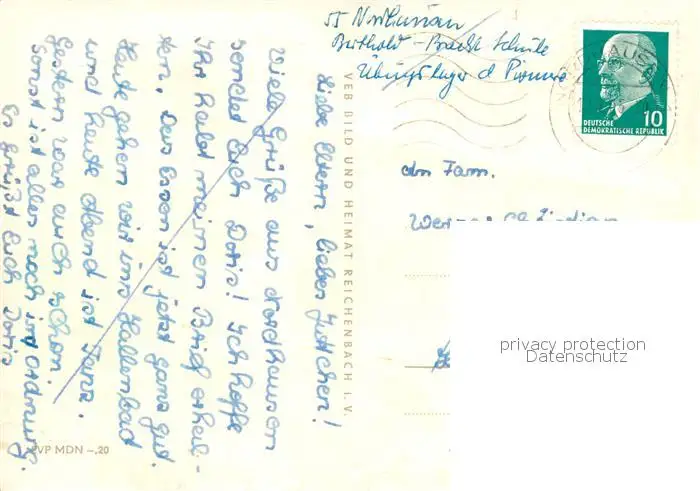 55 Nordhausen
Berthold-Brecht Schule
Übungslager d Pioniere
DEUTSCHE
DEMOKRATISCHE REPUBLIK
10
Liebe Eltern, liebes Juttchen!
Viele Grüße aus Nordhausen
sendet Euch Doris! Ich hoffe
Ihr habt meinen Brief erhal-
ten. Das Essen ist jetzt ganz gut.
Heute gehen wir ins Hallenbad
und heute Abend ist Tanz.
Gestern war auch schon.
Sonst ist alles noch in Ordnung.
Es grüßt Euch Doris
VEB BILD UND HEIMAT REICHENBACH I. V.
An Fam.
Werner
privacy protection
Datenschutz
EVP MDN –.20